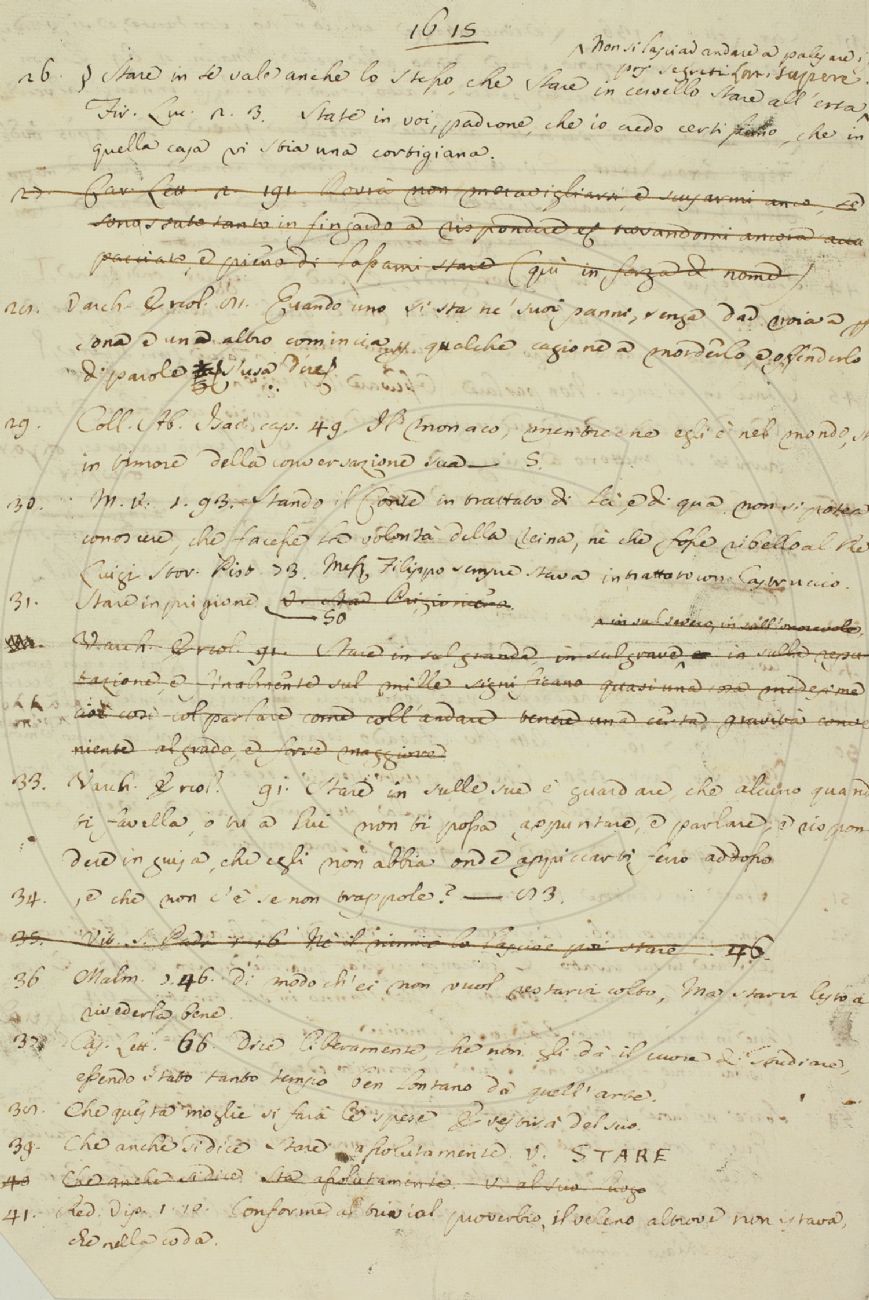 1615
Non si lasciad andare a palesare i
26. Stare in se vale anche lo stesso, che Stare in cervello Stare all'erta,
Fir. Luc. 2. 3. State in voi, padrone, che io credo certissimo, che in
quella casa vi stia una cortigiana.
27. Car. Lett. 2. 191. Dovrà non maravigliarsi, e scusarmi anco, se
sono stato tanto infingardo a rispondere
pacciato, e pieno di lassami stare (quì in forza di nome)
28. Varch. Ercol. 81. Quando uno si sta ne' suoi panni, senza dar noia a
sona e un altro comincia per qualche cagione a morderlo, e offenderlo
di parole s'usa dire
29. Coll. Ab. Isac. cap. 49. Il monaco, mentre che egli è nel mondo,
in timore della conversazione sua — S.
30. M. V. 1. 93. Stando il Conte in trattato di là, e di qua, non si potea
conoscere, che facesse la volontà della reina, nè che fosse ribello al Re
Luigi Stor. Pist. 73. Mess. Filippo sempre stava in trattato con Castruccio.
31. Stare in prigione v. sta Prigioniero
50
in sul severo, in sull'onorevole,
Varch. Ercol. 91. Stare in sul grande, in sul grave, in sulla repu
tazione, e finalmente sul mille significano quasi una medesime
cioè così col parlare come coll'andare tenere una certa gravità conve
niente al grado, e forse maggiore
33. Varch. Ercol. 91. Stare in sulle sue è guardare, che alcuno quand
ti favella, o tu a lui non ti possa appuntare, e parlare, e rispon
dere in guisa, che egli non abbia onde appiccarti ferro addosso
34. , e che non c'è se non trappole? — 83.
35. Vit. S. Padr. 1. 16 Nè il nimico lo lasciò poi stare. 46.
36 Malm. 7. 46. Di modo ch'ei non vuol restarvi colto, Ma starvi lesto a
rivederla bene.
37. Cas. Lett. 66. Dice liberamente, che non gli dà il cuore di studiare,
essendo stato tanto tempo ben lontano da quell'arte.
38. Che questa moglie si farà le spese E vestirà del suo.
39. Che anche si dice Stare assolutamente. V. STARE
40 Che anche si dice Sta assolutamente. v. al suo luogo
41. Red. Dip. 1. 18. Conforme al trivial proverbio, il veleno altrove non istava,
che nella coda.